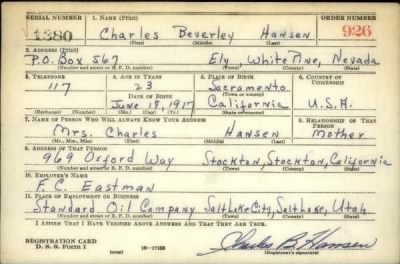 SERIAL NUMBER 1. NAME (Print) ORDER NUMBER
1380 Charles Beverley Hansen 926
(First) (Middle) (Last)
2. ADDRESS (Print)
P.O. Box 567 Ely, White Pine, Nevada
(Number and street or R. F. D. number) (Town) (County) (State)
3. TELEPHONE 4. AGE IN YEARS 5. PLACE OF BIRTH 6. COUNTRY OF CITIZENSHIP
117 23 Sacramento
DATE OF BIRTH (Town or county)
June 18, 1917 California U.S.A.
(Exchange) (Number) (Mo.) (Day) (Yr.) (State or country)
7. NAME OF PERSON WHO WILL ALWAYS KNOW YOUR ADDRESS 8. RELATIONSHIP OF THAT PERSON
Mrs. Charles Hansen Mother
(Mr., Mrs., Miss) (First) (Middle) (Last)
9. ADDRESS OF THAT PERSON
969 Oxford Way Stockton, Stockton, California
(Number and street or R. F. D. number) (Town) (County) (State)
10. EMPLOYER'S NAME
F. C. Eastman
11. PLACE OF EMPLOYMENT OR BUSINESS
Standard Oil Company Salt Lake City, Salt Lake, Utah
(Number and street or R. F. D. number) (Town) (County) (State)
I AFFIRM THAT I HAVE VERIFIED ABOVE ANSWERS AND THAT THEY ARE TRUE.
REGISTRATION CARD
D. S. S. Form 1 (over) 16-17105 Charles B. Hansen
(Registrant's signature)